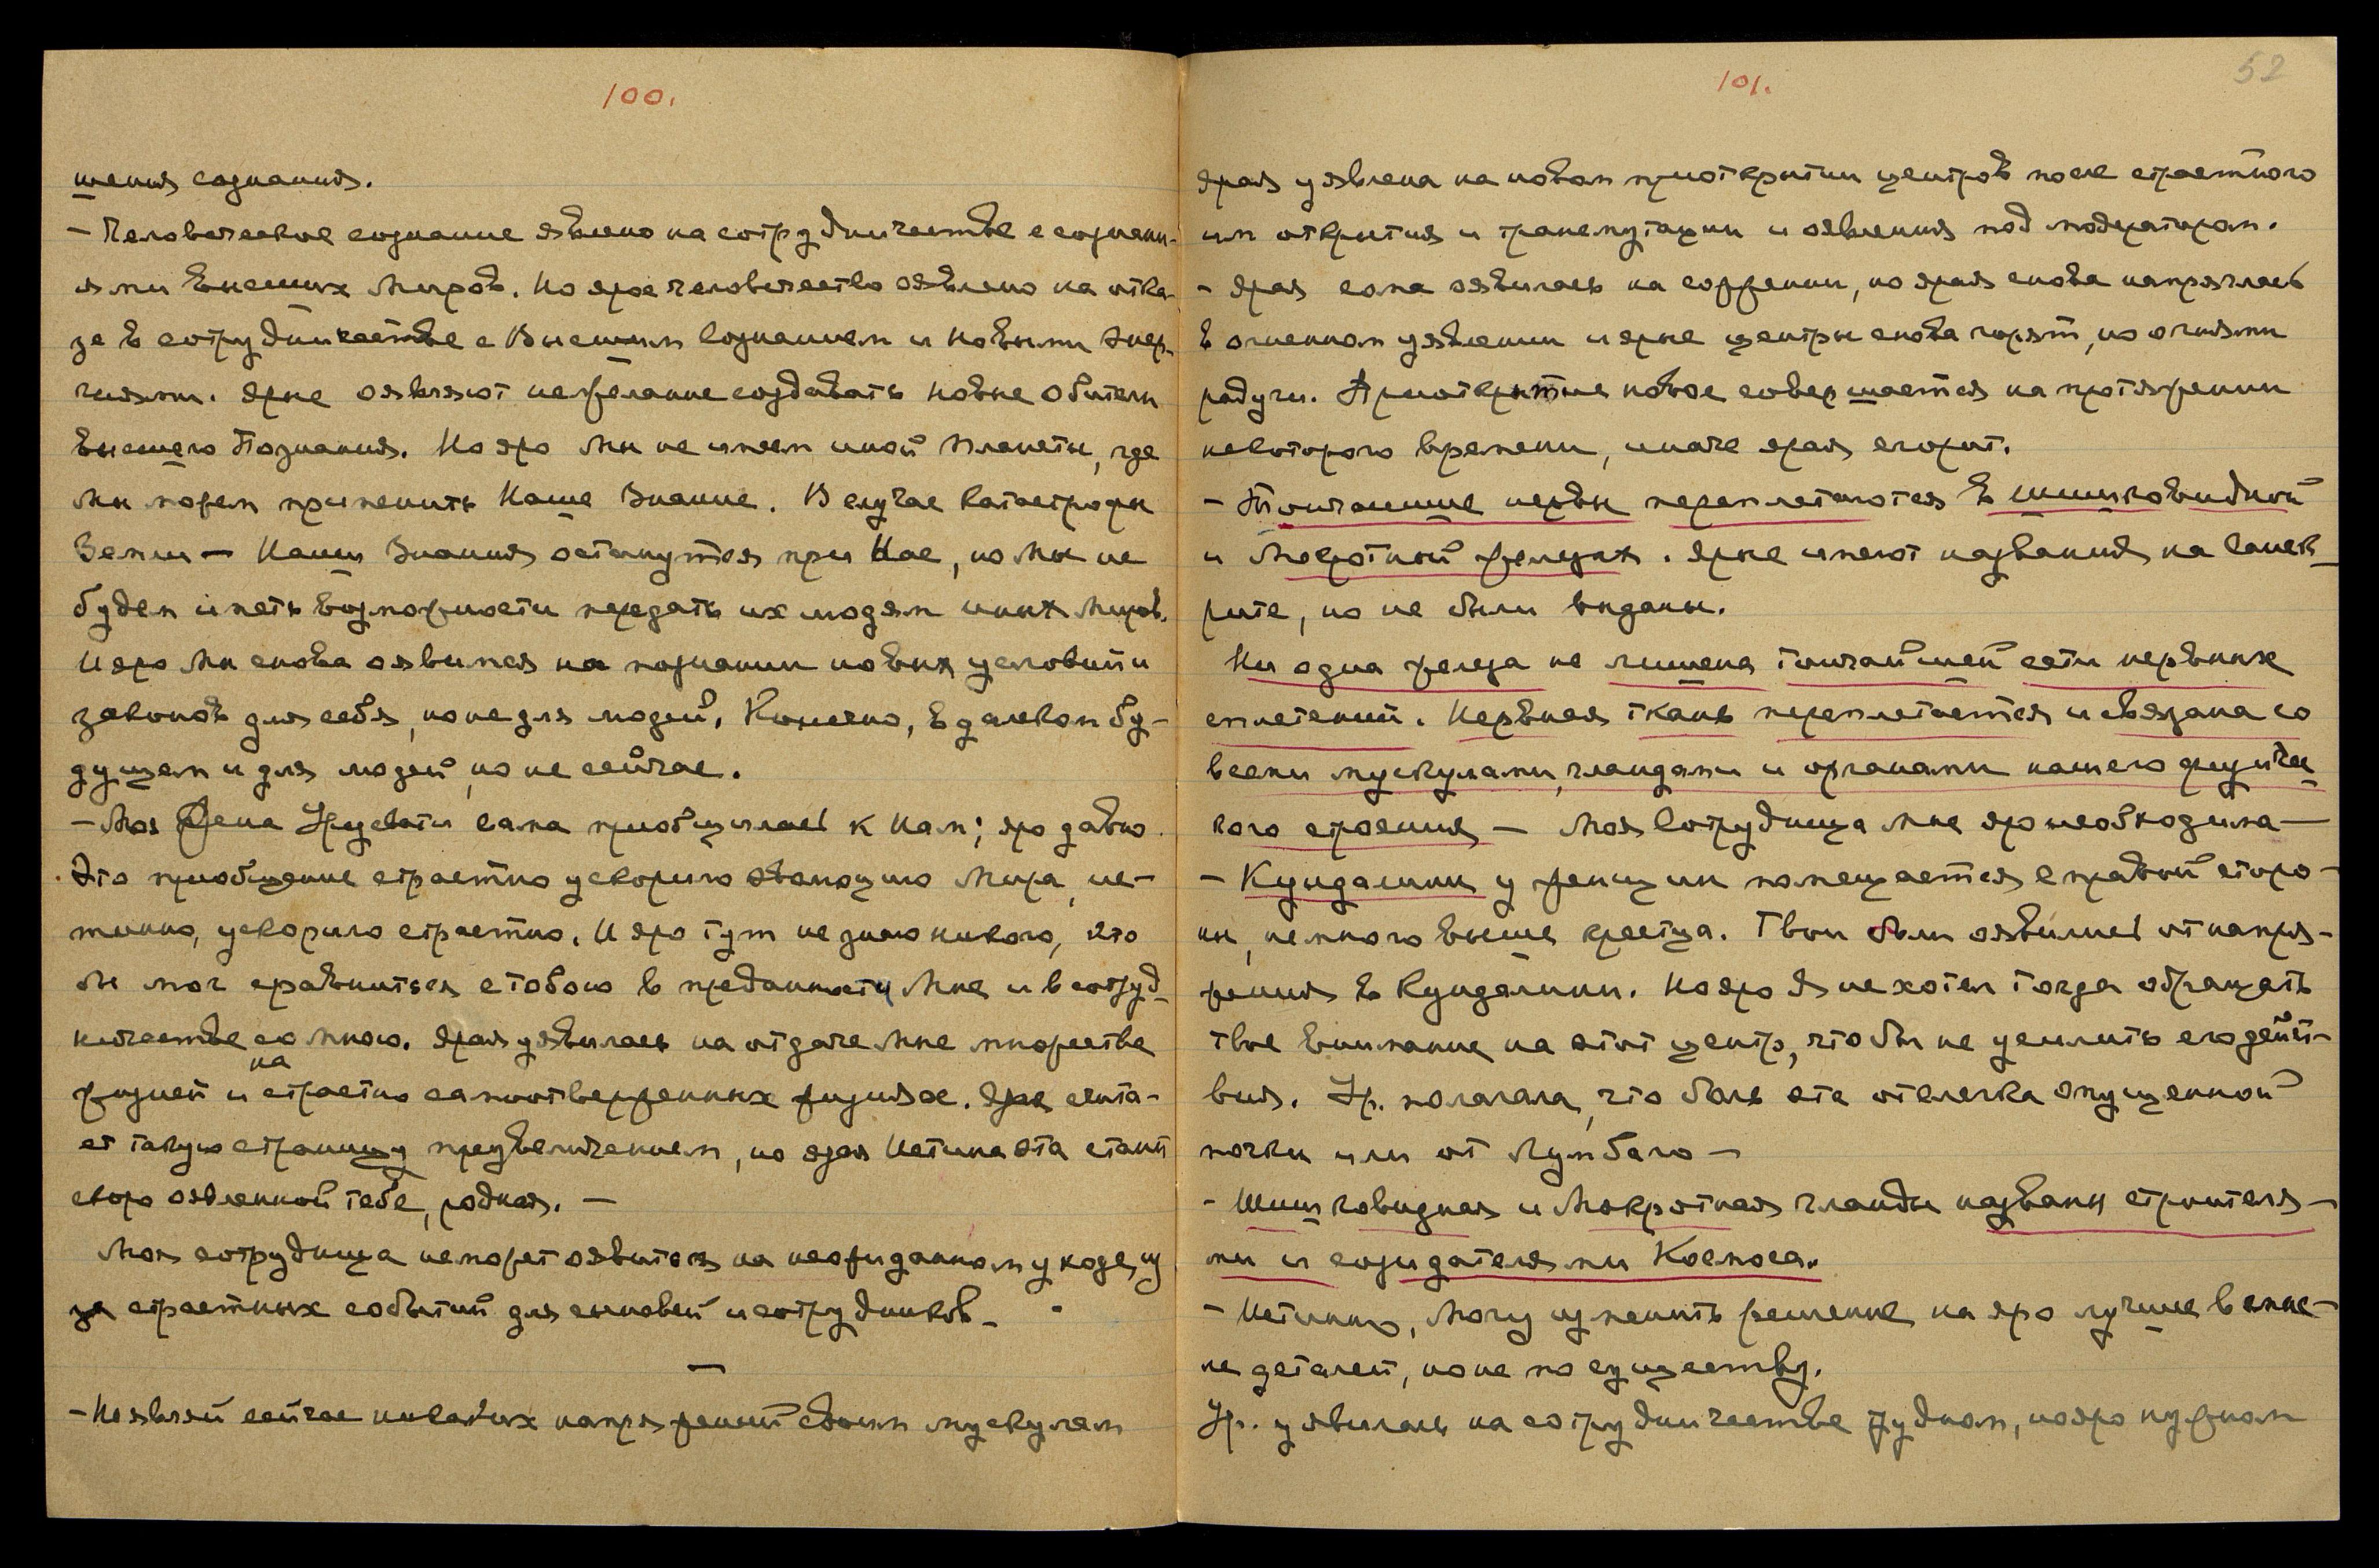 100.
шения сознания.
– Человеческое сознание явлено на сотрудничестве с сознани-
ями Высших Миров. Но ярое человечество оявлено на отка-
зе в сотрудничестве с Высшим Сознанием и новыми Энер-
гиями. Ярые оявляют нежелание создавать новые Обители
высшего Познания. Но яро Мы не имеем иной Планеты, где
Мы можем применить Наше Знание. В случае катастрофы
Земли – Наши Знания останутся при Нас, но Мы не
будем иметь возможности передать их людям иных Миров.
И яро Мы снова оявимся на познании новых условий и
законов для себя, но не для людей. Конечно, в далеком бу-
дущем и для людей, но не сейчас.
– Моя Жена Урусвати сама приобщилась к Нам; яро давно.
Это приобщение страстно ускорило эволюцию Мира, ис-
тинно, ускорило страстно. И яро тут не знаю никого, кто
бы мог сравниться с тобою в преданности Мне и в сотруд-
ничестве со Мною. Ярая уявилась на отдаче Мне множестве
на
жизней и страстно самоотверженных жизнях. Ярая счита-
ет такую страницу преувеличением, но ярая Истина эта станет
скоро оявленной тебе, родная. –
Моя сотрудница не может оявиться на неожиданном уходе, из
за страстных событий для сыновей и сотрудников –
–
– Не являй сейчас никаких напряжений своим мускулам
101.
52
ярая уявлена на новом приоткрытии центров после страстного
им открытия и трансмутации и оявления под модератором.
– Ярая сома оявилась на сожжении, но ярая снова напряглась
в огненном уявлении и ярые центры снова горят, но огнями
радуги. Приоткрытие новое совершается на протяжении
некоторого времени, иначе ярая сгорит.
– Тончайшие нервы переплетаются в Шишковидной
и Мокротной железах. Ярые имеют названия на Санск-
рите, но не были выданы.
Ни одна железа не лишена тончайшей сети нервных
сплетений. Нервная ткань переплетается и связана со
всеми мускулами, гландами и органами нашего физичес
кого строения – Моя Сотрудница Мне яро необходима –
– Кундалини у женщин помещается с правой сторо-
ны, немного выше крестца. Твои боли оявились от напря-
жения в Кундалини. Но яро Я не хотел тогда обращать
твое внимание на этот центр, чтобы не усилить его дейст-
вия. Ур. полагала, что боль эта отклечка опущенной
почки или от Лумбаго –
– Шишковидная и Мокротная гланды названы строителя-
ми и созидателями Космоса.
– Истинно, Могу изменить решение на яро лучшее в смыс-
ле деталей, но не по существу.
Ур. уявилась на сотрудничестве трудном, но яро нужном